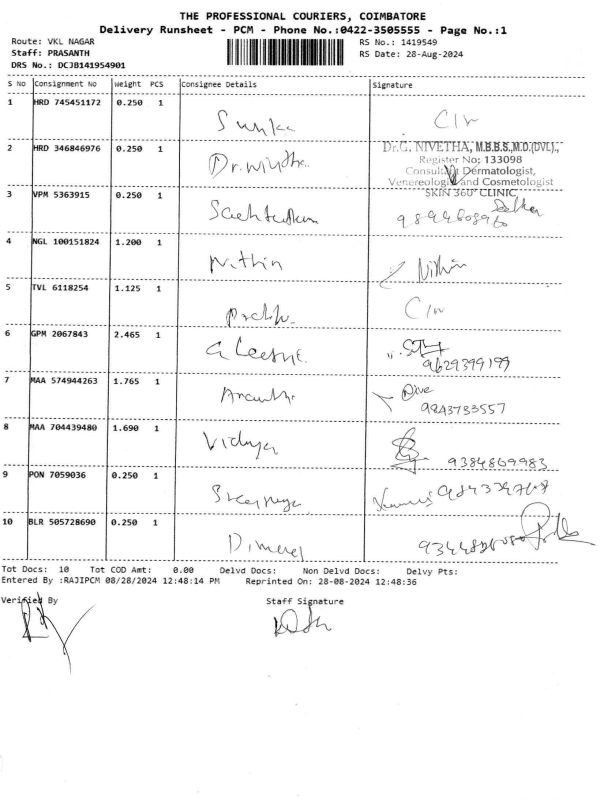 THE PROFESSIONAL COURIERS, COIMBATORE
Delivery Runsheet - PCM - Phone No.:0422-3505555 - Page No.:1
Route: VKL NAGAR
RS No.: 1419549
Staff: PRASANTH
RS Date: 28-Aug-2024
DRS No.: DCJB141954901
S No Consignment No Weight PCS Consignee Details Signature
1 HRD 745451172 0.250 1
2 HRD 346846976 0.250 1
Dr.G. NIVETHA, M.B.B.S.,M.D.(DVL).,
Register No: 133098
Consultant Dermatologist,
Venereologist and Cosmetologist
SKIN 360° CLINIC
3 VPM 5363915 0.250 1
4 NGL 100151824 1.200 1 Nithin Nithin
5 TVL 6118254 1.125 1
6 GPM 2067843 2.465 1
9629399199
7 MAA 574944263 1.765 1
9843733557
8 MAA 704439480 1.690 1 Vidhya
9384869983
9 PON 7059036 0.250 1
10 BLR 505728690 0.250 1
Tot Docs: 10 Tot COD Amt: 0.00 Delvd Docs: Non Delvd Docs: Delvy Pts:
Entered By :RAJIPCM 08/28/2024 12:48:14 PM Reprinted On: 28-08-2024 12:48:36
Verified By Staff Signature